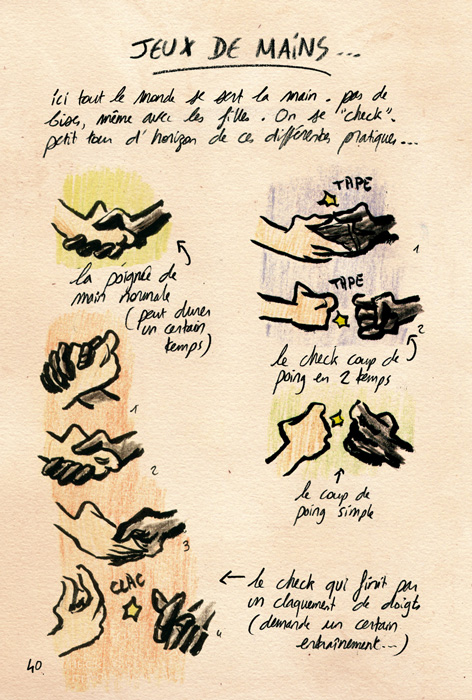 JEUX DE MAINS...
ici tout le monde se sert la main. pas de
bises, même avec les filles. On se "check".
petit tour d'horizon de ces différentes pratiques...
la poignée de
main normale
(peut durer
un certain
temps)
TAPE
1
TAPE
2
le check coup de
poing en 2 temps
le coup de
poing simple
1
2
3
CLAC
4
← le check qui finit par
un claquement de doigts
(demande un certain
entraînement...)
40